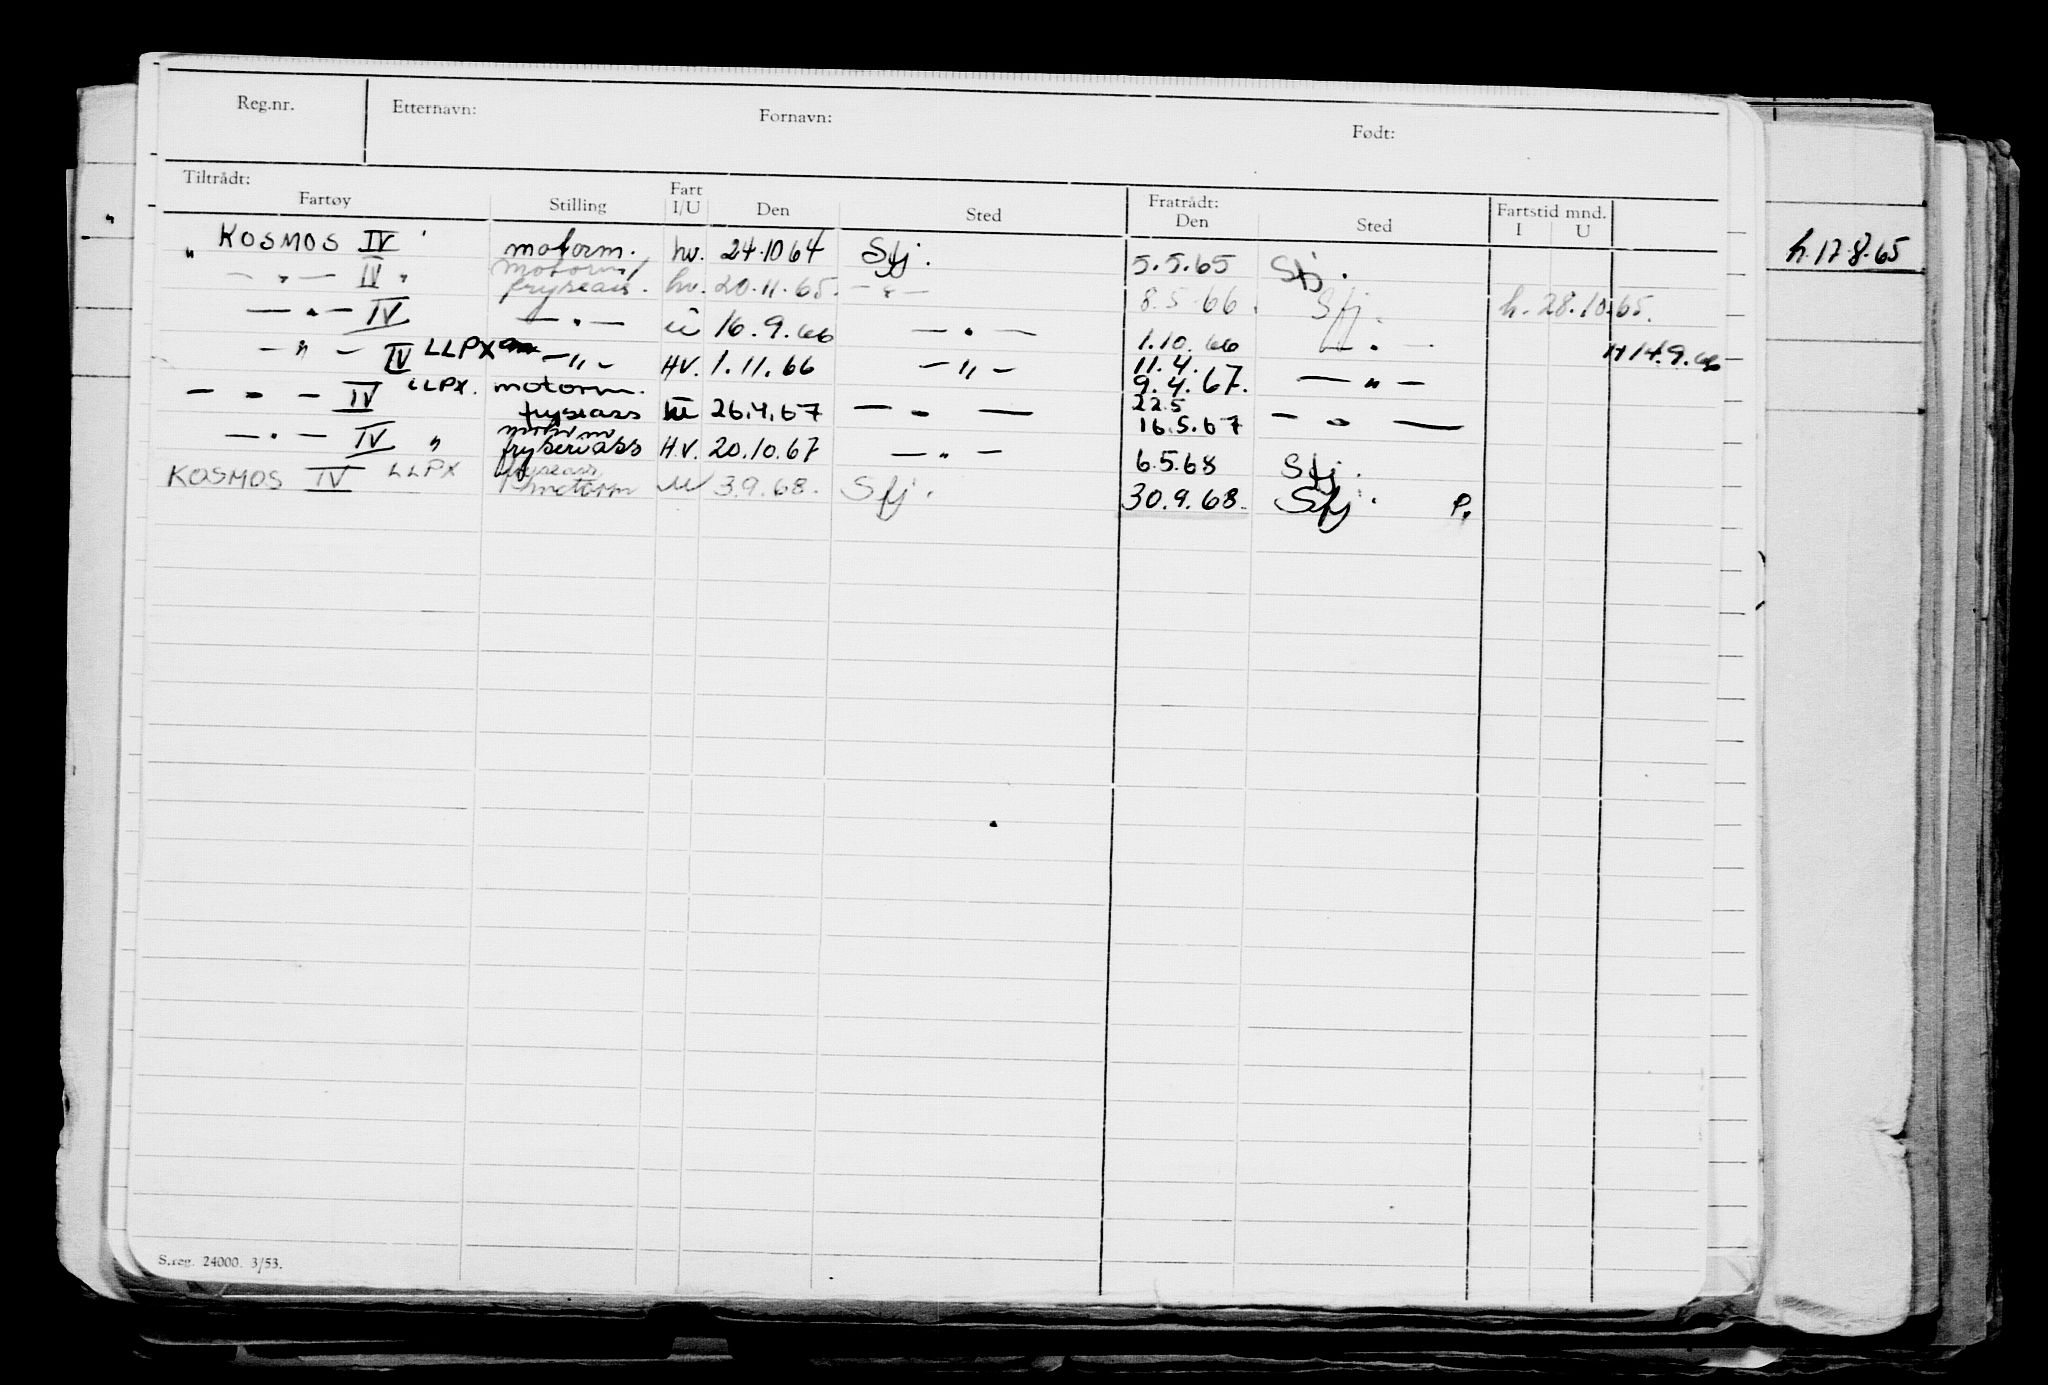 Reg.nr. Etternavn: Fornavn: Født:
Tiltrådt: Fratrådt:
Fartøy Stilling Fart I/U Den Sted Den Sted Fartstid mnd. I U
" KOSMOS IV " motorm. hv. 24.10 64 Sfj. 5.5.65 Sfj. h. 17.8.65
— " — IV " motorm/ fryseass. hv. 20.11.65. — " — 8.5.66. Sfj. h. 28.10.65.
— " — IV — " — u 16.9.66 — " — 1.10.66 — " — H 14.9.66
— " — IV LLPX — " — HV. 1.11.66 — " — 11.4. 9.4.67. — " —
— " — IV LLPX. motorm. fryseass 26.4.67 — " — 22.5 16.5.67 — " —
— " — IV " motorm fryserass H.V. 20.10.67 — " — 6.5.68 Sfj.
KOSMOS IV LLPX fryseass motorm u 3.9.68. Sfj. 30.9.68. Sfj. P.
S.reg. 24000. 3/53.